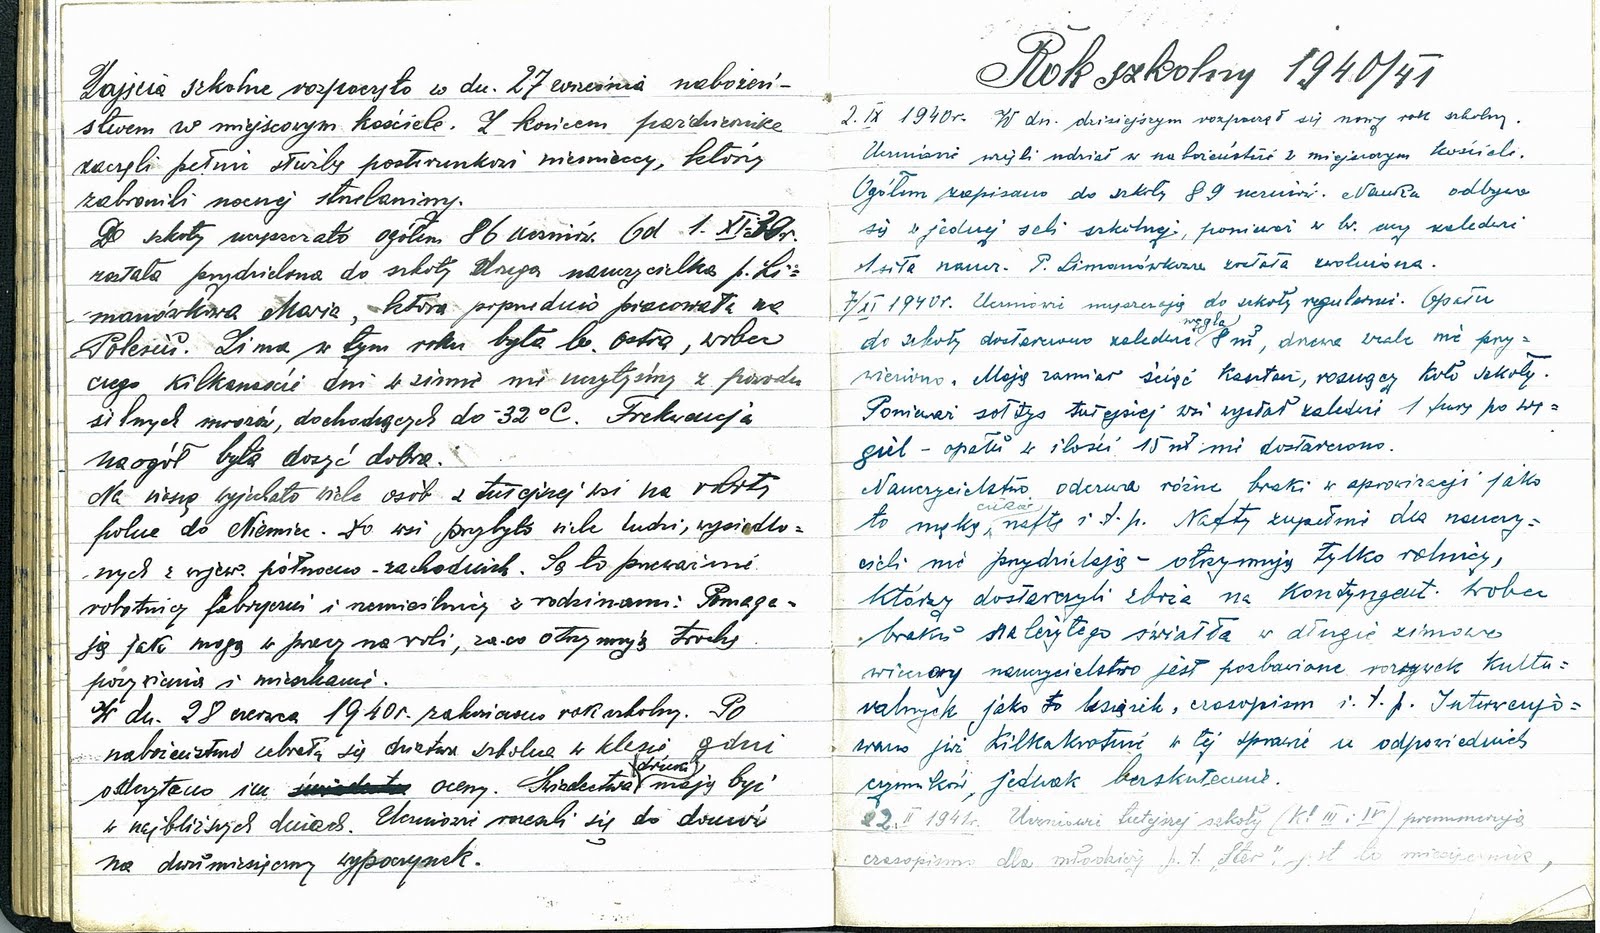 Zajęcia szkolne rozpoczęto w dn. 27 września nabożeń-
stwem w miejscowym kościele. Z końcem października
zaczęli pełnić służbę posterunkowi niemieccy, którzy
zabronili nocnej strzelaniny.
Do szkoły uczęszczało ogółem 86 uczniów. Od 1. XI. 39 r.
została przydzielona do szkoły druga nauczycielka p. Li=
manówkowa Maria, która poprzednio pracowała na
Polesiu. Zima w tym roku była b. ostra, wobec
czego kilkanaście dni w zimie nie uczyliśmy z powodu
silnych mrozów, dochodzących do -32°C. Frekwencja
naogół była dosyć dobra.
Na wiosnę wyjechało wiele osób z tutejszej wsi na roboty
polne do Niemiec. Do wsi przybyło wiele ludzi, wysiedlo=
nych z wojew. północno-zachodnich. Są to przeważnie
robotnicy fabryczni i rzemieślnicy z rodzinami. Pomaga-
ją jak mogą w pracy na roli, za co otrzymują trochę
pożywienia i mieszkanie.
W dn. 28 czerwca 1940 r. zakończono rok szkolny. Po
nabożeństwie zebrała się dziatwa szkolna w klasie gdzie
odczytano im oceny. Świadectwa (druki) mają być
w najbliższych dniach. Uczniowie rozeszli się do domów
na dwumiesięczny wypoczynek.
Rok szkolny 1940/41
2. IX 1940 r. W dn. dzisiejszym rozpoczął się nowy rok szkolny.
Uczniowie wzięli udział w nabożeństwie w miejscowym kościele.
Ogółem zapisano do szkoły 89 uczniów. Nauka odbywa
się w jednej sali szkolnej, ponieważ w br. uczy zaledwie
1 siła naucz. P. Limanówkowa została zwolniona.
7/XI 1940 r. Uczniowie uczęszczają do szkoły regularnie. Opału
do szkoły dostarczono zaledwie węgla 8 m, drzewa wcale nie przy=
wieziono. Mają zamiar ściąć kasztan, rosnący koło szkoły.
Ponieważ sołtys tutejszej wsi wysłał zaledwie 1 furę po wę=
giel - opału w ilości 15 m nie dostarczono.
Nauczycielstwo odczuwa różne braki w aprowizacji jako
to mąkę, cukier, naftę i t. p. Nafty zupełnie dla nauczy=
cieli nie przydzielają - otrzymują tylko rolnicy,
którzy dostarczyli zboża na kontyngent. Wobec
braku należytego światła w długie zimowe
wieczory nauczycielstwo jest pozbawione rozrywek kultu=
ralnych jako to książek, czasopism i. t. p. Interwenjo=
wano już kilkakrotnie w tej sprawie u odpowiednich
czynników, jednak bezskutecznie.
22. II 1941 r. Uczniowie tutejszej szkoły (kl III i IV) prenumerują
czasopismo dla młodzieży p. t. "Ster", jest to miesięcznik,